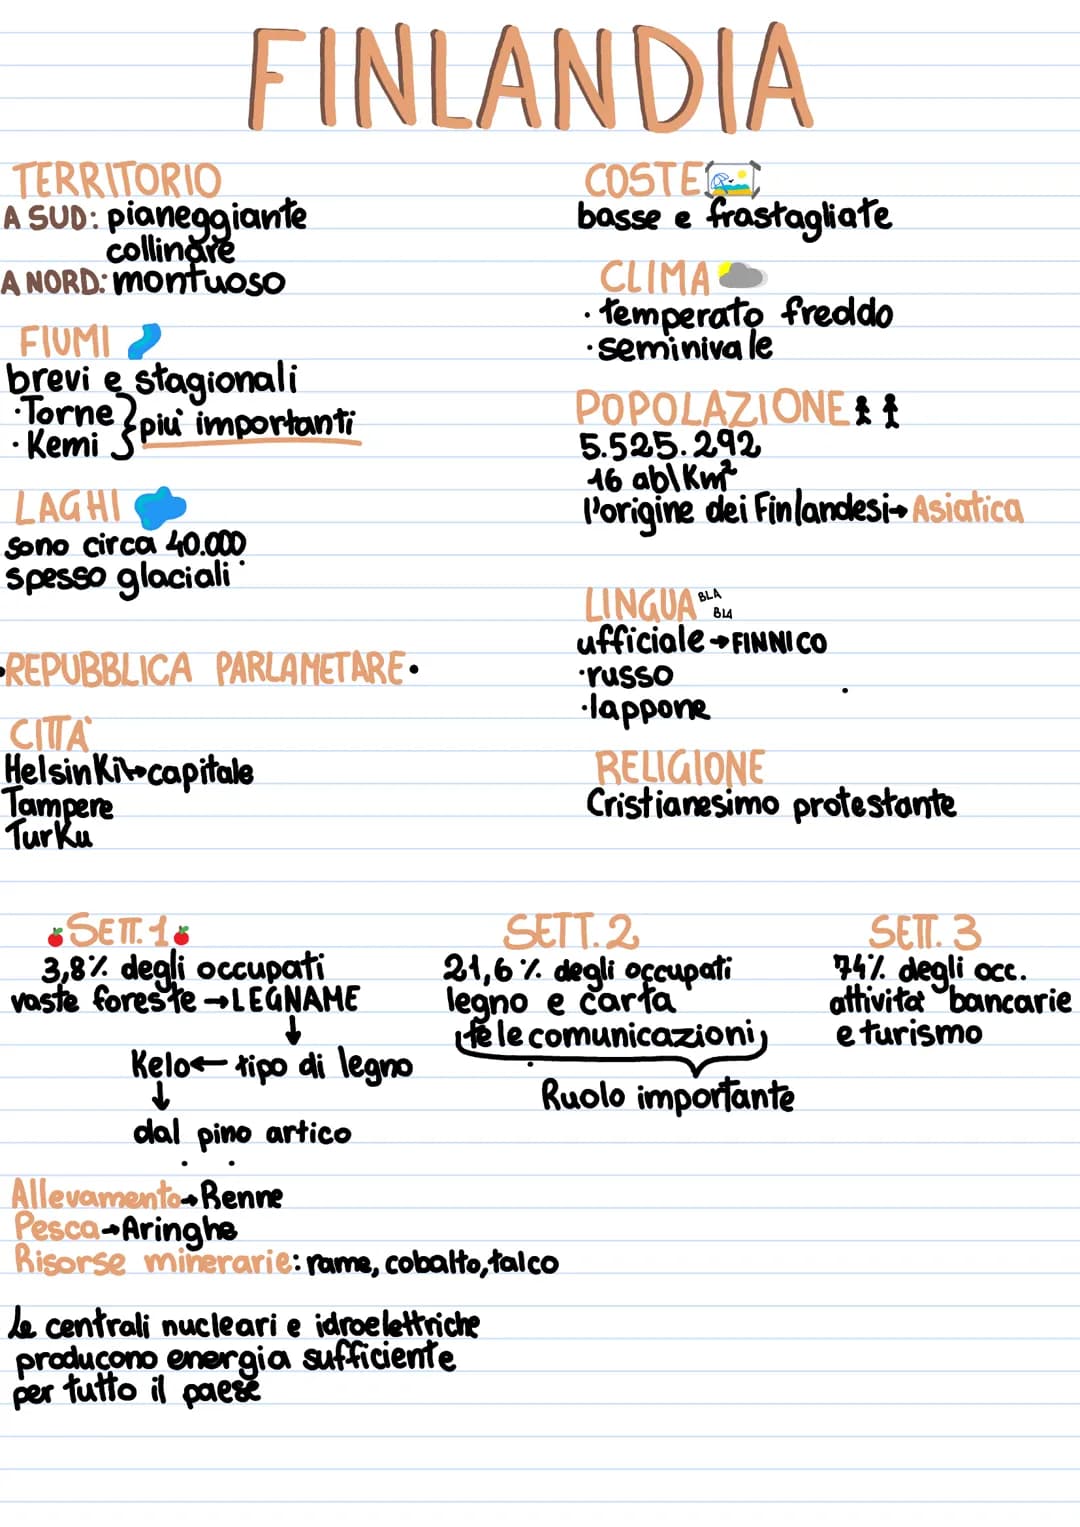 FINLANDIA
TERRITORIO
A SUD: pianeggiante
collinare
A NORD: montuoso
FIUMI
brevi e stagionali
·Torne
·Kemi
più importanti
LAGHI
sono circa 40.000
spesso glaciali
·REPUBBLICA PARLAMETARE·
CITTÀ
Helsinki→capitale
Tampere
Turku
COSTE
basse e frastagliate
CLIMA
·temperato freddo
·seminivale
POPOLAZIONE
5.525.292
16 ab\Km²
l'origine dei Finlandesi→Asiatica
LINGUA BLA
BLA
ufficiale→FINNICO
·russo
·lappone
RELIGIONE
Cristianesimo protestante
SETT. 1
3,8% degli occupati
vaste foreste→LEGNAME
↓
Kelo←tipo di legno
↓
dal pino artico
SETT. 2
21,6% degli occupati
legno e carta
telecomunicazioni
Ruolo importante
SETT. 3
74% degli occ.
attività bancarie
e turismo
Allevamento→Renne
Pesca→Aringhe
Risorse minerarie: rame, cobalto, talco
le centrali nucleari e idroelettriche
producono energia sufficiente
per tutto il paese